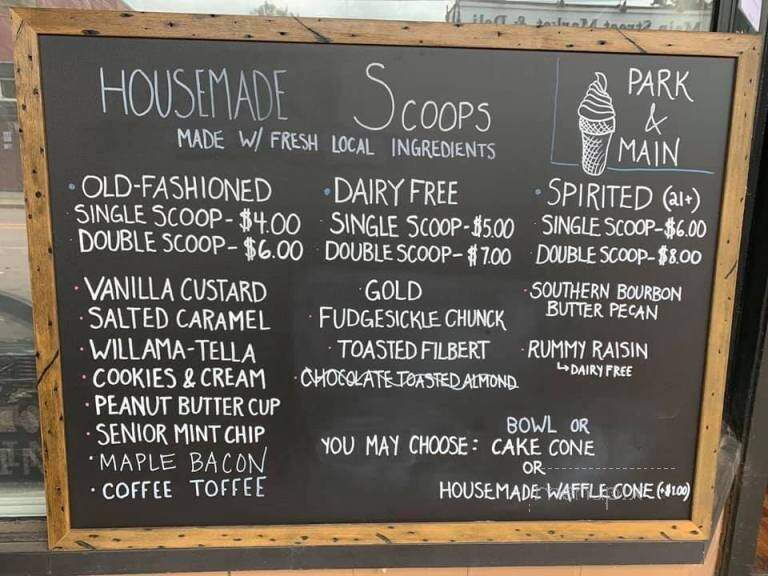 HOUSEMADE SCOOPS
MADE W/ FRESH LOCAL INGREDIENTS
PARK
&
MAIN
· OLD-FASHIONED
SINGLE SCOOP - $4.00
DOUBLE SCOOP - $6.00
· VANILLA CUSTARD
· SALTED CARAMEL
· WILLAMA-TELLA
· COOKIES & CREAM
· PEANUT BUTTER CUP
· SENIOR MINT CHIP
· MAPLE BACON
· COFFEE TOFFEE
· DAIRY FREE
· SINGLE SCOOP - $5.00
· DOUBLE SCOOP - $7.00
· GOLD
· FUDGESICKLE CHUNCK
· TOASTED FILBERT
· CHOCOLATE TOASTED ALMOND
· SPIRITED (21+)
· SINGLE SCOOP - $6.00
· DOUBLE SCOOP - $8.00
· SOUTHERN BOURBON
BUTTER PECAN
· RUMMY RAISIN
↳ DAIRY FREE
YOU MAY CHOOSE: BOWL OR
CAKE CONE
OR
HOUSEMADE WAFFLE CONE (+$1.00)